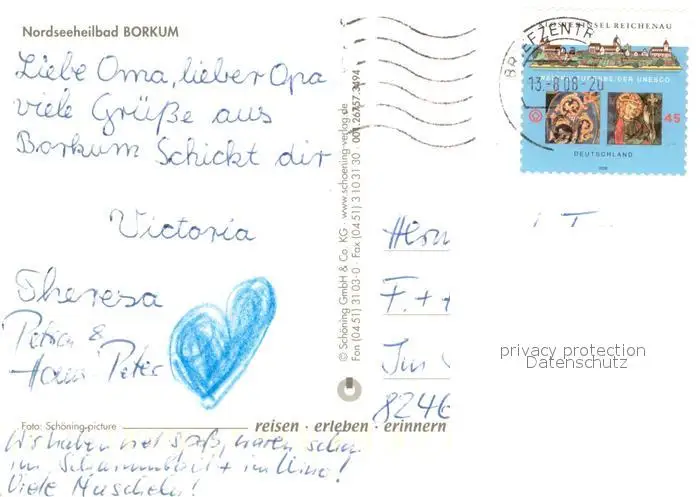 Nordseeheilbad BORKUM
Liebe Oma, lieber Opa
viele Grüße aus
Borkum Schickt dir
Victoria
Theresa
Petra &
Hans Peter
Foto: Schöning-picture
reisen · erleben · erinnern
Wir haben viel Spaß, waren schon
im Schwimmbad + im Kino!
Viele Muscheln!
© Schöning GmbH & Co. KG · www.schoening-verlag.de
Fon (04 51) 31 03-0 · Fax (04 51) 3 10 31 30 · 001.26757.3494
KLOSTERINSEL REICHENAU
WELTKULTURERBE DER UNESCO
45
DEUTSCHLAND
2008
BRIEFZENTR
13.-8.08-20
Im
8246
privacy protection
Datenschutz